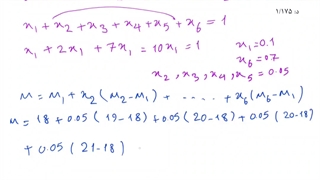 ۱/۱۷۵
x₁ + x₂ + x₃ + x₄ + x₅ + x₆ = 1
x₁ + 2x₁ + 7x₁ = 10x₁ = 1
x₁ = 0.1
x₆ = 0.7
x₂ , x₃ , x₄ , x₅ = 0.05
M = M₁ + x₂ (M₂ - M₁) + ..... + x₆ (M₆ - M₁)
M = 18 + 0.05 ( 19 - 18 ) + 0.05 ( 20 - 18 ) + 0.05 ( 20 - 18 )
+ 0.05 ( 21 - 18 )